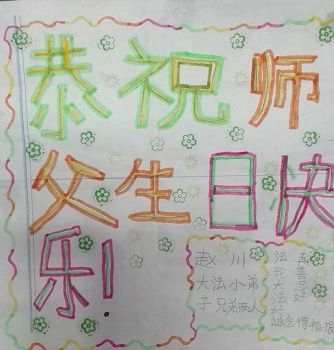 恭祝师
父生日快
乐!
赵 川
大法小弟
子兄弟两人
法轮大法好
真善忍好
念得福报